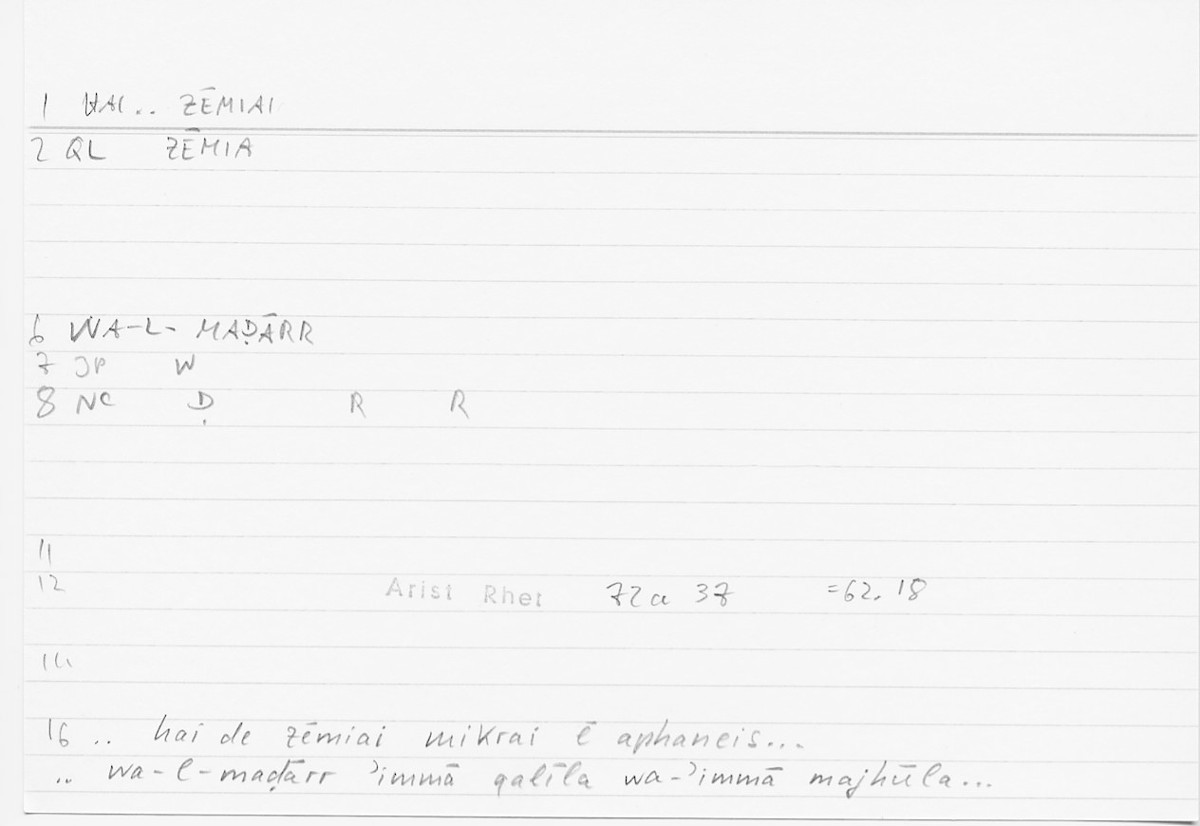 1 HAI.. ZĒMIAI
2 QL ZĒMIA
6 WA-L- MAḌĀRR
7 JP W
8 NC Ḍ R R
11
12 Arist Rhet 72a 37 =62.18
14
16 .. hai de zēmiai mikrai ē aphaneis...
.. wa-l-maḍārr ʾimmā qalīla wa-ʾimmā majhūla...